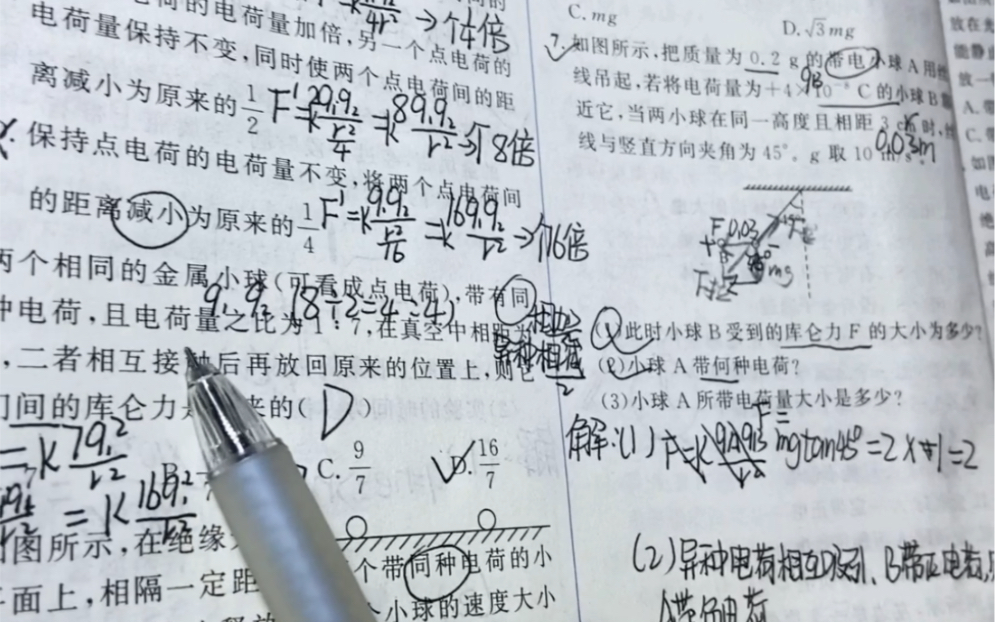 的电荷量加倍,另一个点电荷的
电荷量保持不变,同时使两个点电荷间的距
离减小为原来的1/2 F'=k 2q₁q₂/(r²/4) =k 8q₁q₂/r² →个8倍
保持点电荷的电荷量不变,将两个点电荷间
的距离减小为原来的1/4 F'=k q₁q₂/(r²/16) =k 16q₁q₂/r² →个16倍
两个相同的金属小球(可看成点电荷),带有同
种电荷,且电荷量之比为1:7,在真空中相距
(8÷2=4=4)
,二者相互接触后再放回原来的位置上,则它
们间的库仑力是原来的( D
=k 7q₁²/r²
C. 9/7
√D. 16/7
= k 16q₁²/r²
图所示,在绝缘
个带同种电荷的小
面上,相隔一定距
小球的速度大小
C. mg
D. √3 mg
7. 如图所示,把质量为 0.2 g 的带电小球 A 用
线吊起,若将电荷量为+4×10⁻⁸ C 的小球 B
qB
近它,当两小球在同一高度且相距 3 cm 时,
0.03m
线与竖直方向夹角为 45°。g 取 10 m/s²
F 0.03
mg
(1)此时小球 B 受到的库仑力 F 的大小为多少?
(2)小球 A 带何种电荷?
(3)小球 A 所带电荷量大小是多少?
F=
解:(1) F=k qAqB/r² mgtan45°=2×1=2
(2)异种电荷相互吸引、B带正电荷,
A带负电荷